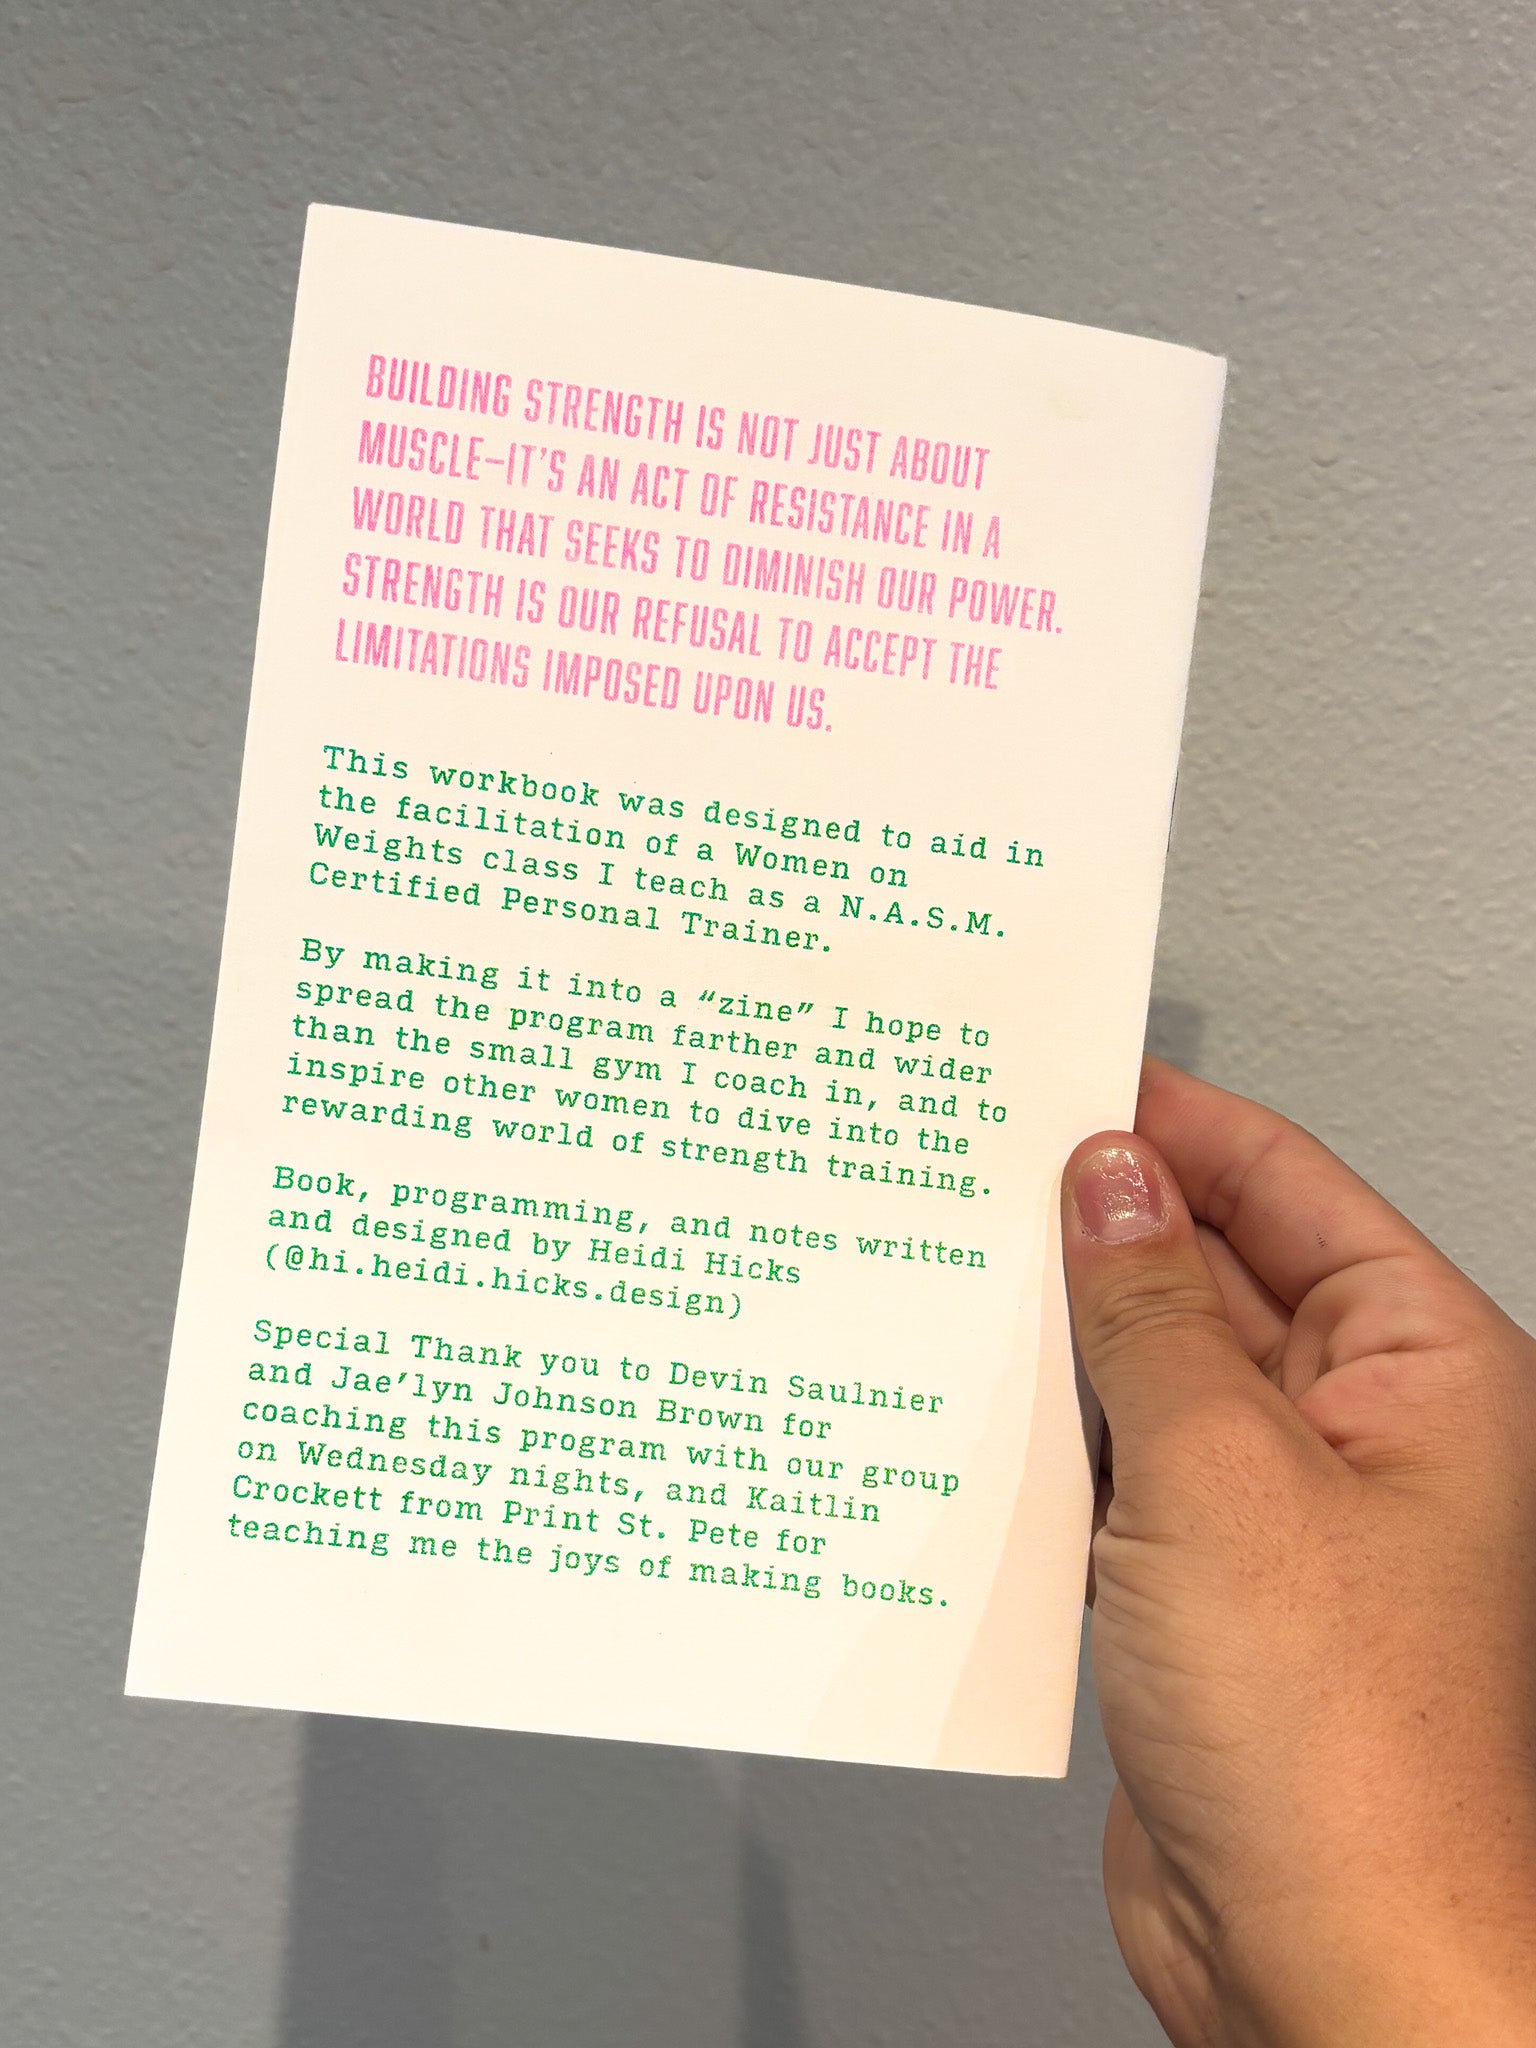 BUILDING STRENGTH IS NOT JUST ABOUT
MUSCLE–IT'S AN ACT OF RESISTANCE IN A
WORLD THAT SEEKS TO DIMINISH OUR POWER.
STRENGTH IS OUR REFUSAL TO ACCEPT THE
LIMITATIONS IMPOSED UPON US.
This workbook was designed to aid in
the facilitation of a Women on
Weights class I teach as a N.A.S.M.
Certified Personal Trainer.
By making it into a “zine” I hope to
spread the program farther and wider
than the small gym I coach in, and to
inspire other women to dive into the
rewarding world of strength training.
Book, programming, and notes written
and designed by Heidi Hicks
(@hi.heidi.hicks.design)
Special Thank you to Devin Saulnier
and Jae’lyn Johnson Brown for
coaching this program with our group
on Wednesday nights, and Kaitlin
Crockett from Print St. Pete for
teaching me the joys of making books.